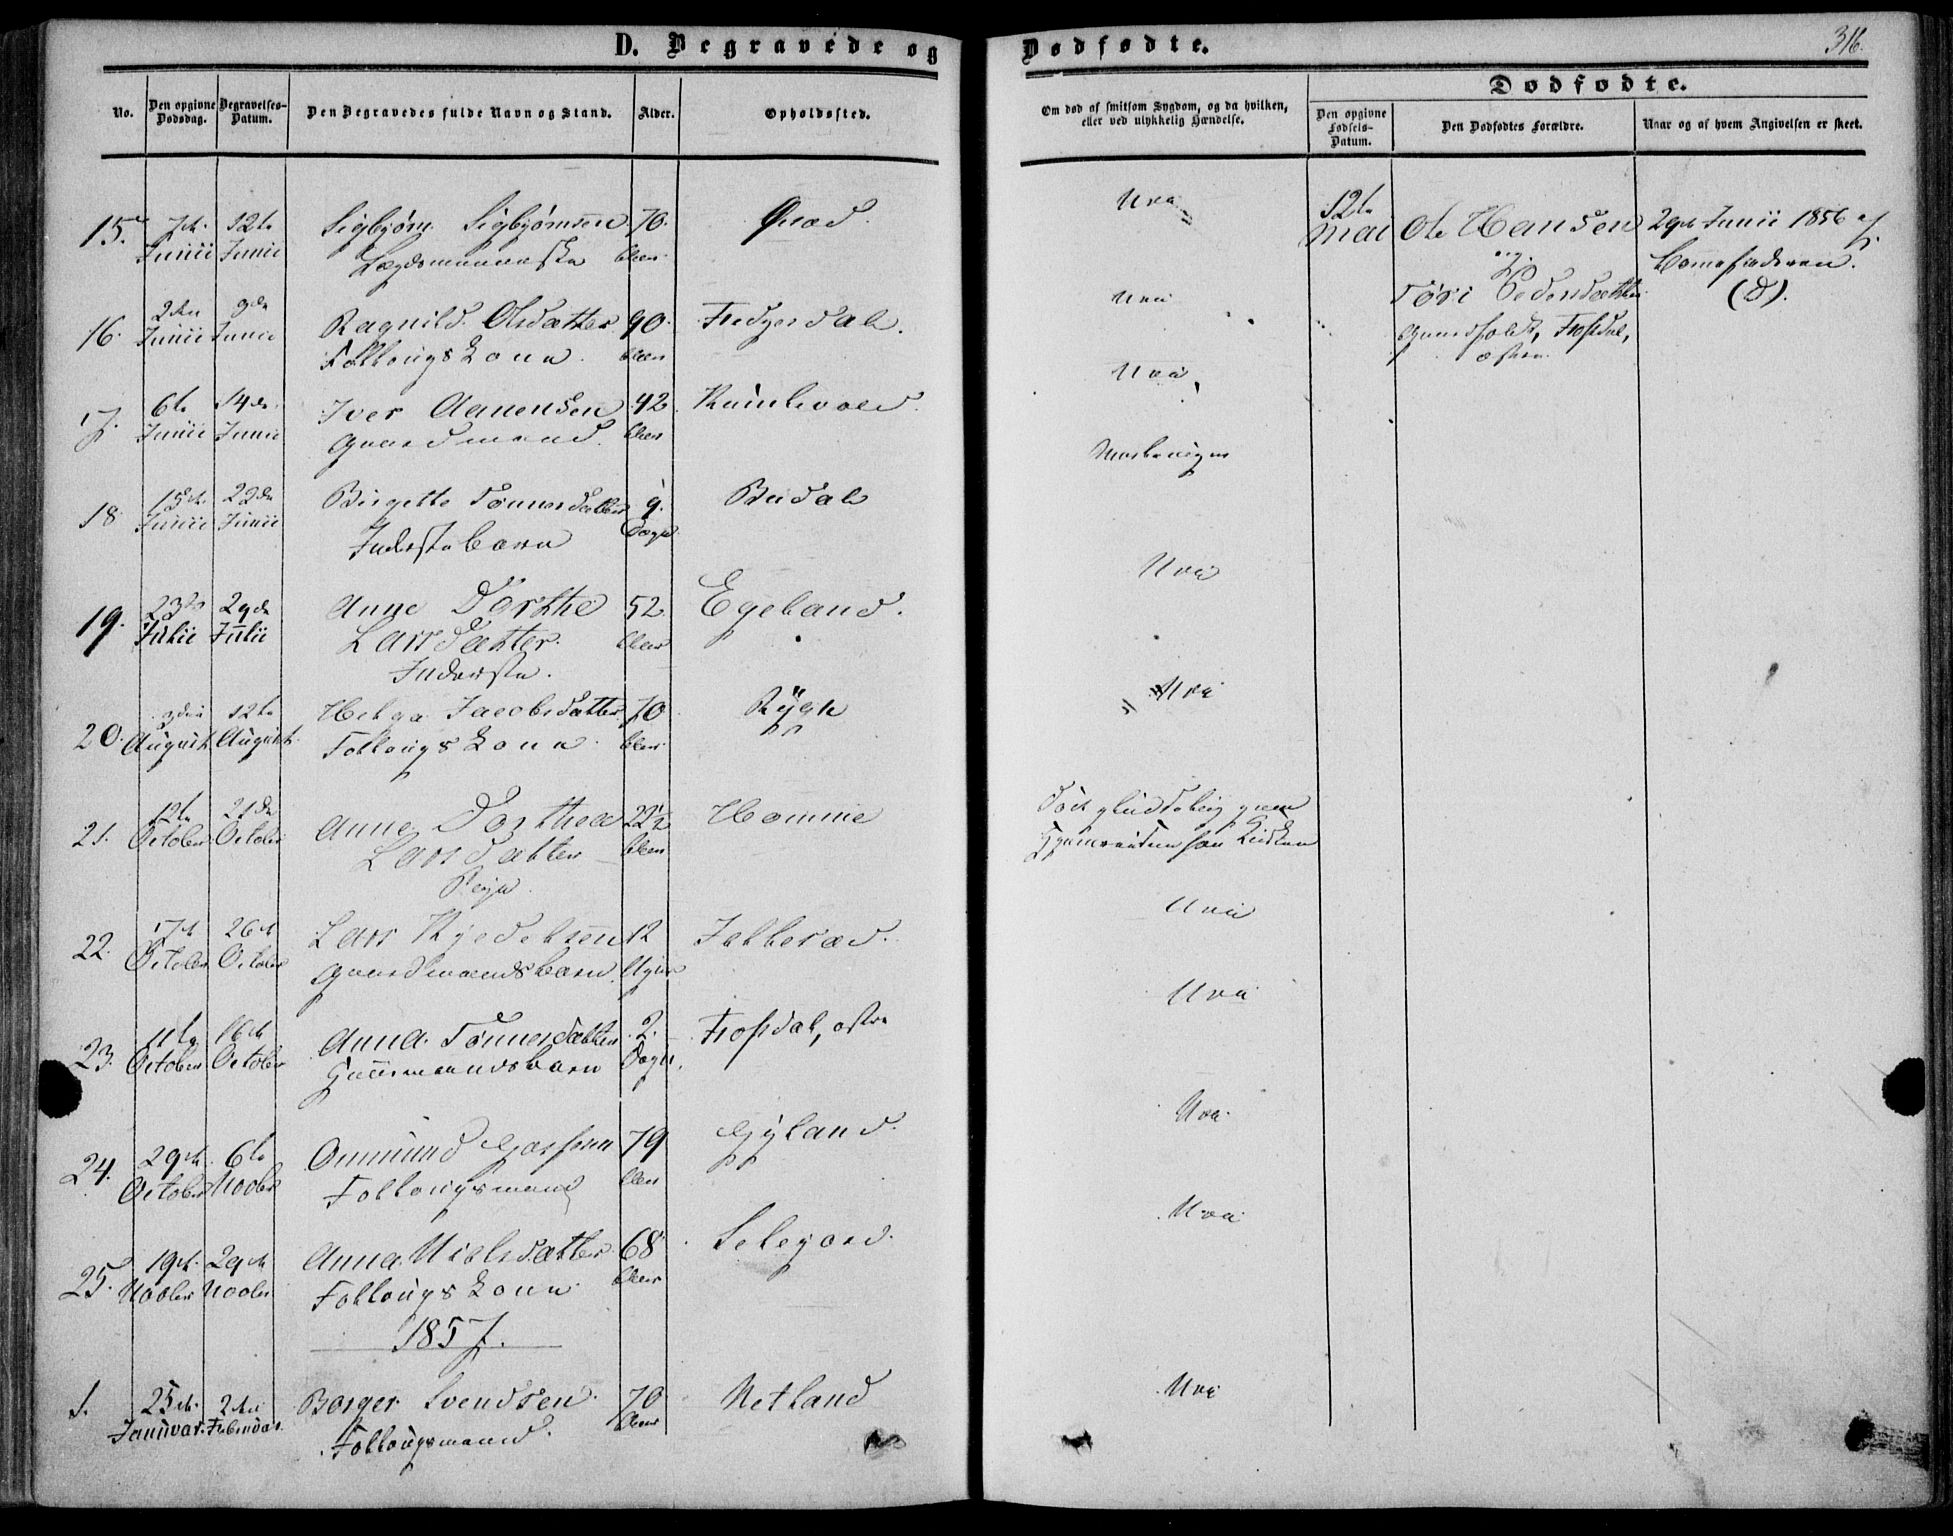 D. Begravede og Dødfødte.
316.
Dødfødte.
No.
Den opgivne Dødsdag.
Begravelses-Datum.
Den Begravedes fulde Navn og Stand.
Alder.
Opholdssted.
Om død af smitsom Sygdom, og da hvilken,
eller ved ulykkelig Hændelse.
Den opgivne Fødsels-Datum.
Den Dødfødtes Forældre.
Naar og af hvem Angivelsen er skeet.
15. 7de 12te Sigbjørn Sigbjørnsen 70. Qvad. Nei
Junii Junii Lægdsmand Aar
12te Ole Hansen 29de Junii 1856 af
Mai og
Tøri Pedersdatter (D).
Gaardfolk, Frøsdal,
østre.
16. 2den 9de Ragnild Olsdatter 90. Fredgersdal. Nei
Junii Junii Føllougskone Aar
17. 6te 14de Iver Aanensen 42 Nei
Junii Junii Gaardmand. Aar
18. 15de 22de Birgitte Tønnesdatter 9. Budal
Junii Junii Inderstebarn Dage
19. 23de 29de Anne Dorthe 52 Egeland. Nei
Julii Julii Larsdatter. Aar
Inderste.
20. 3die 12te Helga Jacobsdatter 70 Nei
August August. Føllougskone. Aar
21. 12te 21de Anne Dorthea 22½ Homme
October October Larsdatter Aar
Pige.
22. 17de 26de Lars Kjedelsen 12 Nei
October October Gaardmandsbarn. Uger
23. 11te 16de Anna Tønnesdatter 2. Frøsdal, østre Nei
October October Huusmandsbarn Dage.
24. 29de 6te Ommund 79 Gyland. Nei
October Novbr Føllougsmand Aar
25. 19de 29de Anna Nielsdatter 68 Selegord. Nei
Novbr Novbr Føllougskone Aar
1857.
1. 25de 2den Børger Svendsen 70 Netland Nei
Januvar. Februvar. Føllougsmand. Aar